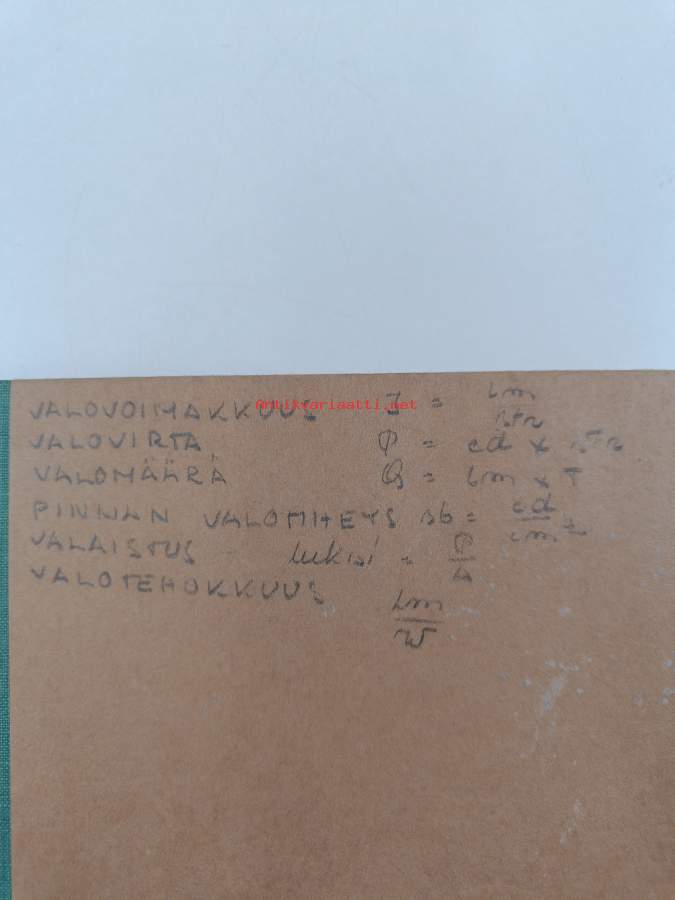 VALOVOIMAKKUUS I = lm/str
Antikvariaatti.net
VALOVIRTA Φ = cd x str
VALOMÄÄRÄ Q = lm x T
PINNAN VALOTIHEYS sb = cd/cm²
VALAISTUS luksi = Φ/A
VALOTEHOKKUUS lm/W